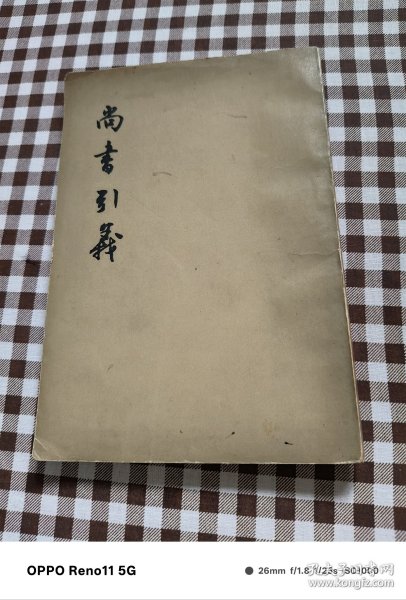 尚书引義
OPPO Reno11 5G
26mm f/1.8 1/23s ISO1000
孔夫子旧书网
www.kongfz.com